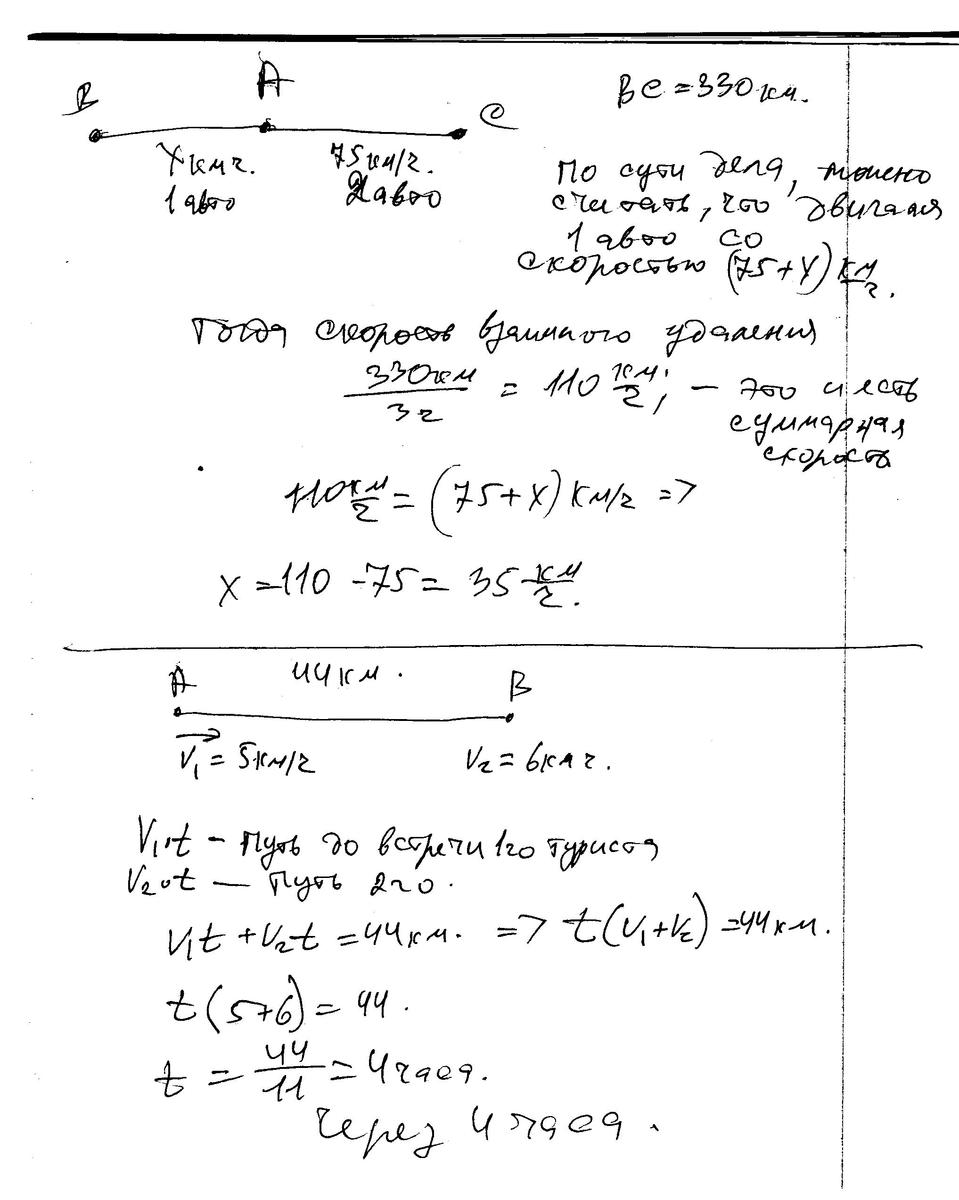 B A C
BC = 330 км.
X км ч. 75 км/г.
1 авто 2 авто
По сути дела, можно
считать, что двигался
1 авто со
скоростью (75+X) км/г.
Тогда скорость взаимного удаления
330 км / 3 г = 110 км/г; — это и есть
суммарная
скорость
110 км/г = (75+X) км/г =>
X = 110 - 75 = 35 км/г.
44 км.
A B
V₁ = 5 км/г V₂ = 6 км г.
V₁·t - Путь до встречи 1го туриста
V₂·t — Путь 2го.
V₁t + V₂t = 44 км. => t(V₁+V₂) = 44 км.
t(5+6) = 44.
t = 44/11 = 4 часа.
Через 4 часа.